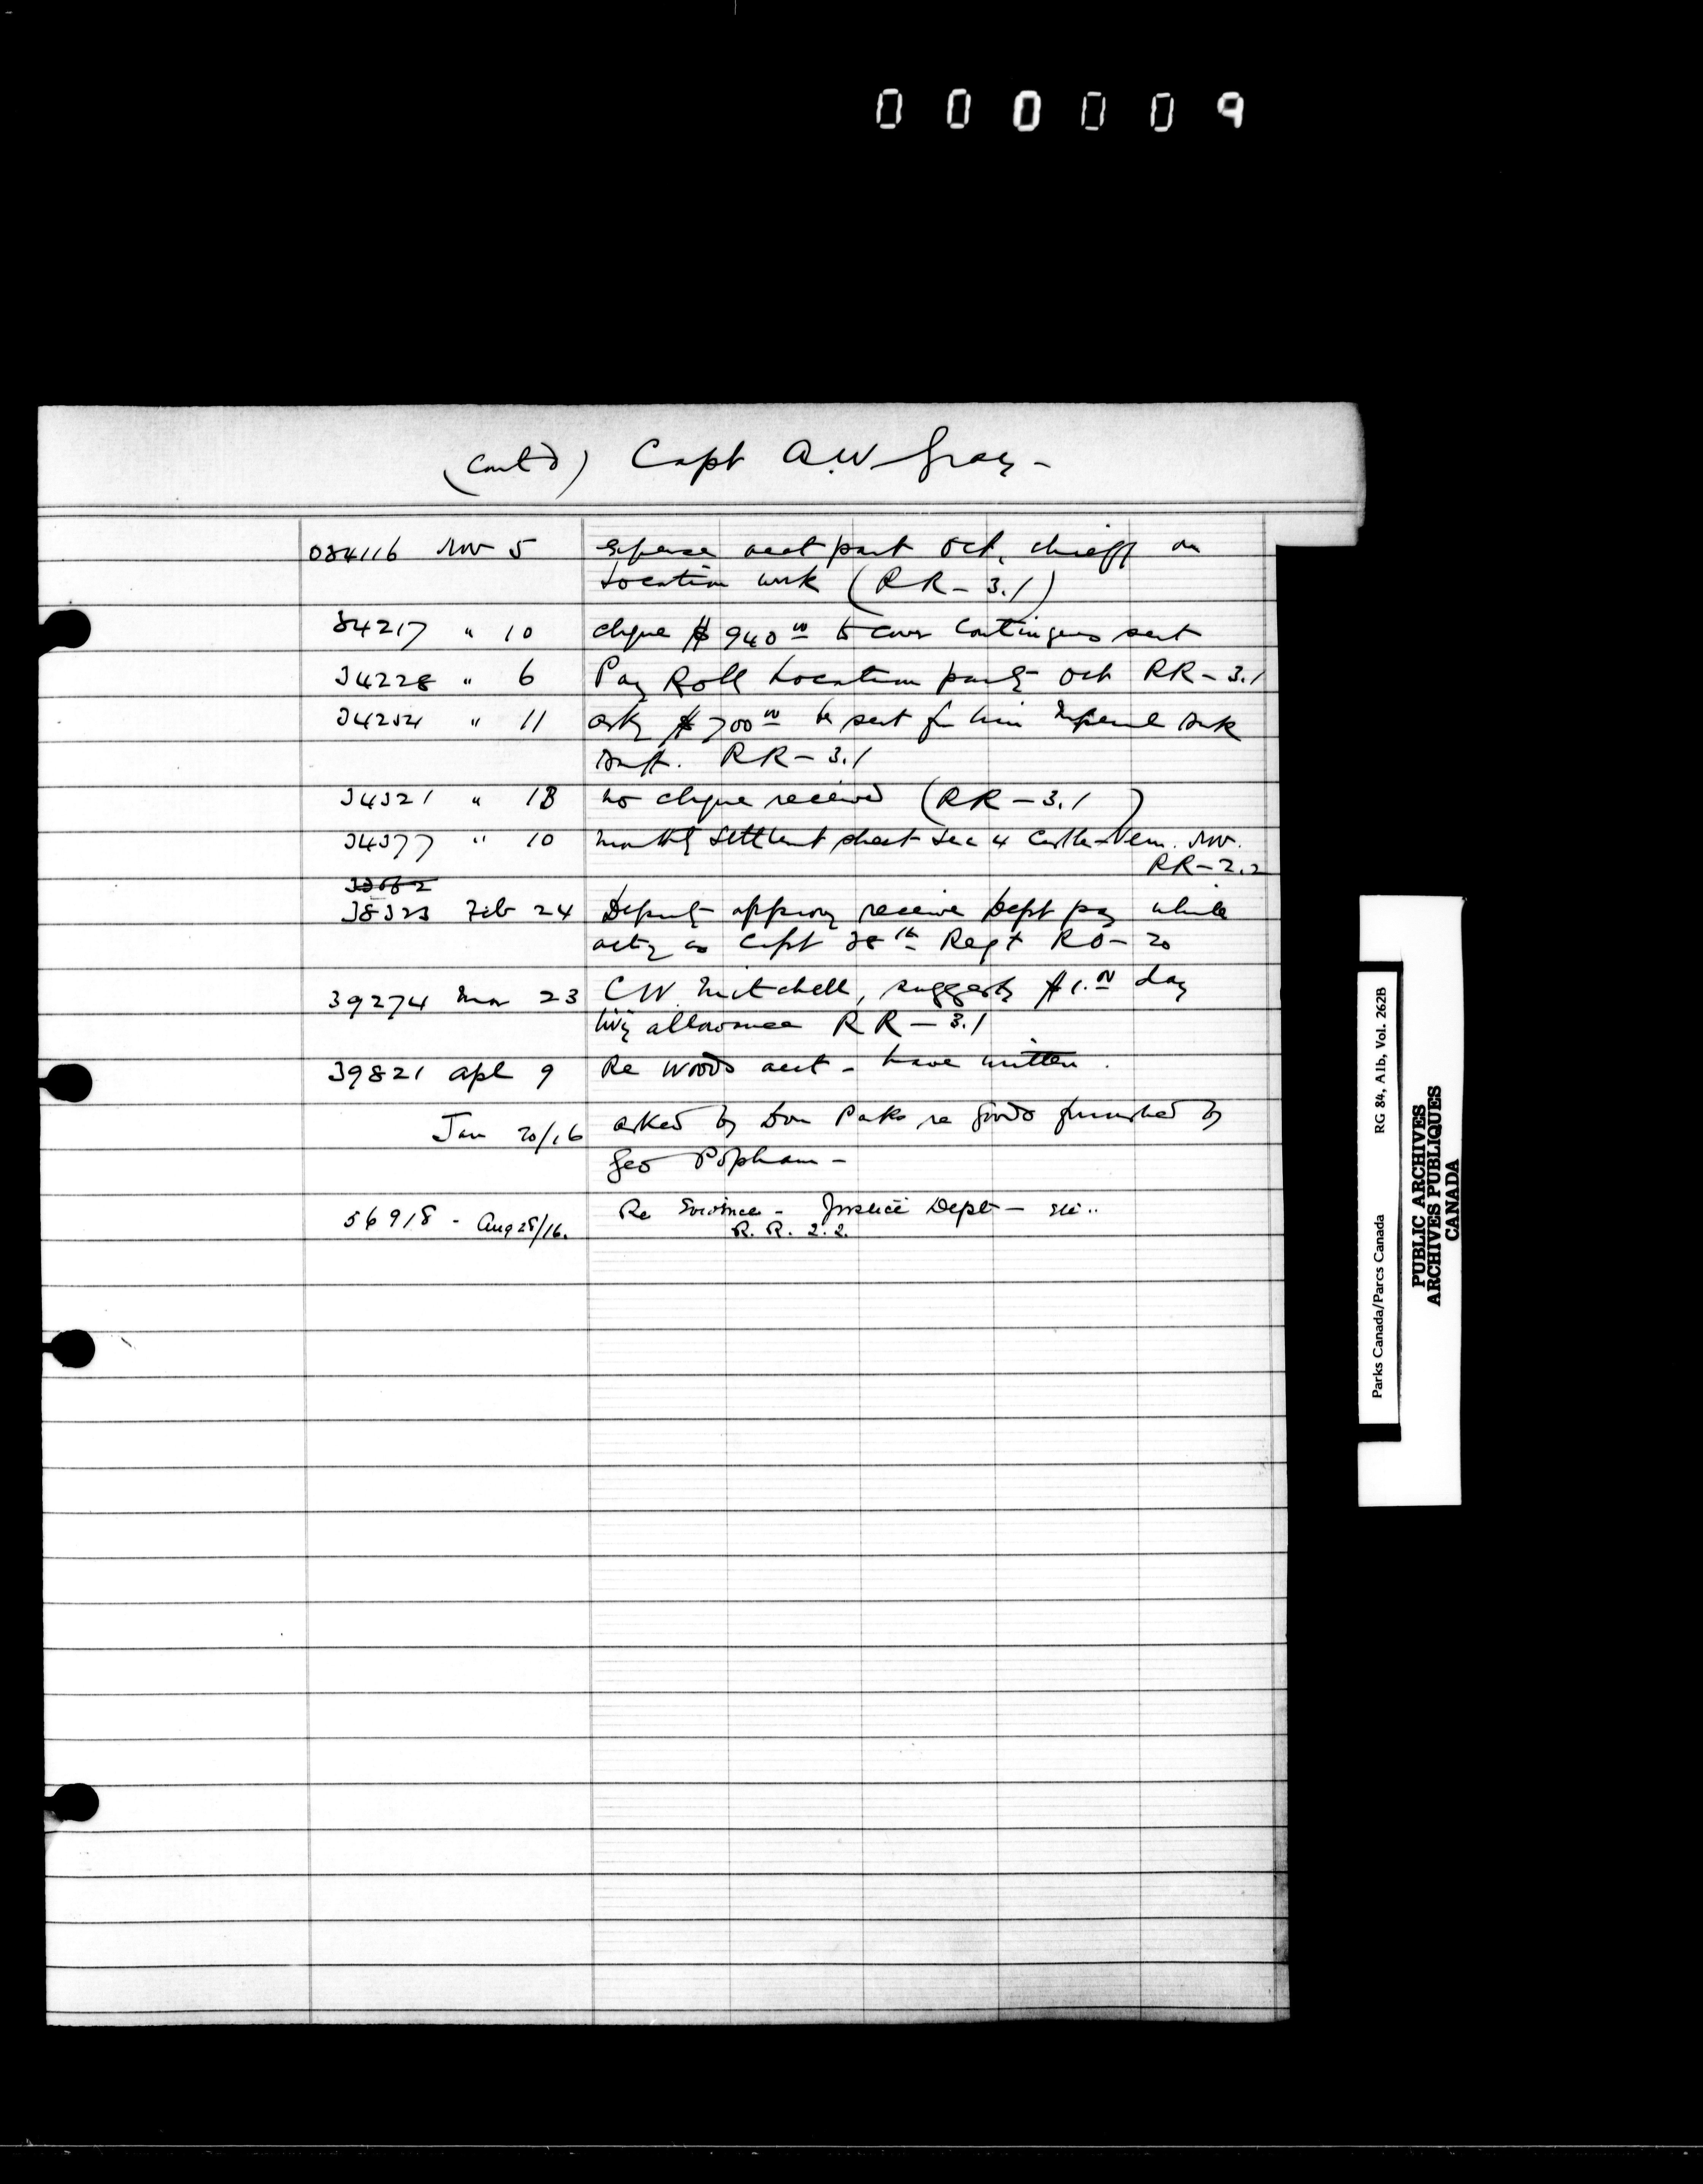 000009
(Cont'd) Capt A.W. Gray -
034116 Nov 5 Expense acct part Oct, chiefly on
Location work (RR-3.1)
34217 " 10 cheque $940 00 to cover Contingens sent
34228 " 6 Pay Roll Location party Oct RR-3.1
34254 " 11 asks $700 00 be sent for him Imperial Bank
Banff. RR-3.1
34321 " 18 no cheque received (RR-3.1)
34377 " 10 monthly Settlement sheet Sec 4 Castle-Verm. Nov.
RR-2.2
38323 Feb 24 Deputy approves receive Dept pay while
actg as Capt 38th Regt RO-20
39274 Mar 23 C W. Mitchell, suggests $1.00 day
livg allowance RR-3.1
39821 Apl 9 Re Woods acct - have written.
Jan 20/16 asked by Dom Parks re goods furnished by
Geo Popham -
56918 - Aug 28/16. Re Evidence - Justice Dept -
R.R. 2.2.
Parks Canada/Parcs Canada RG 84, Alb, Vol. 262B
PUBLIC ARCHIVES
ARCHIVES PUBLIQUES
CANADA